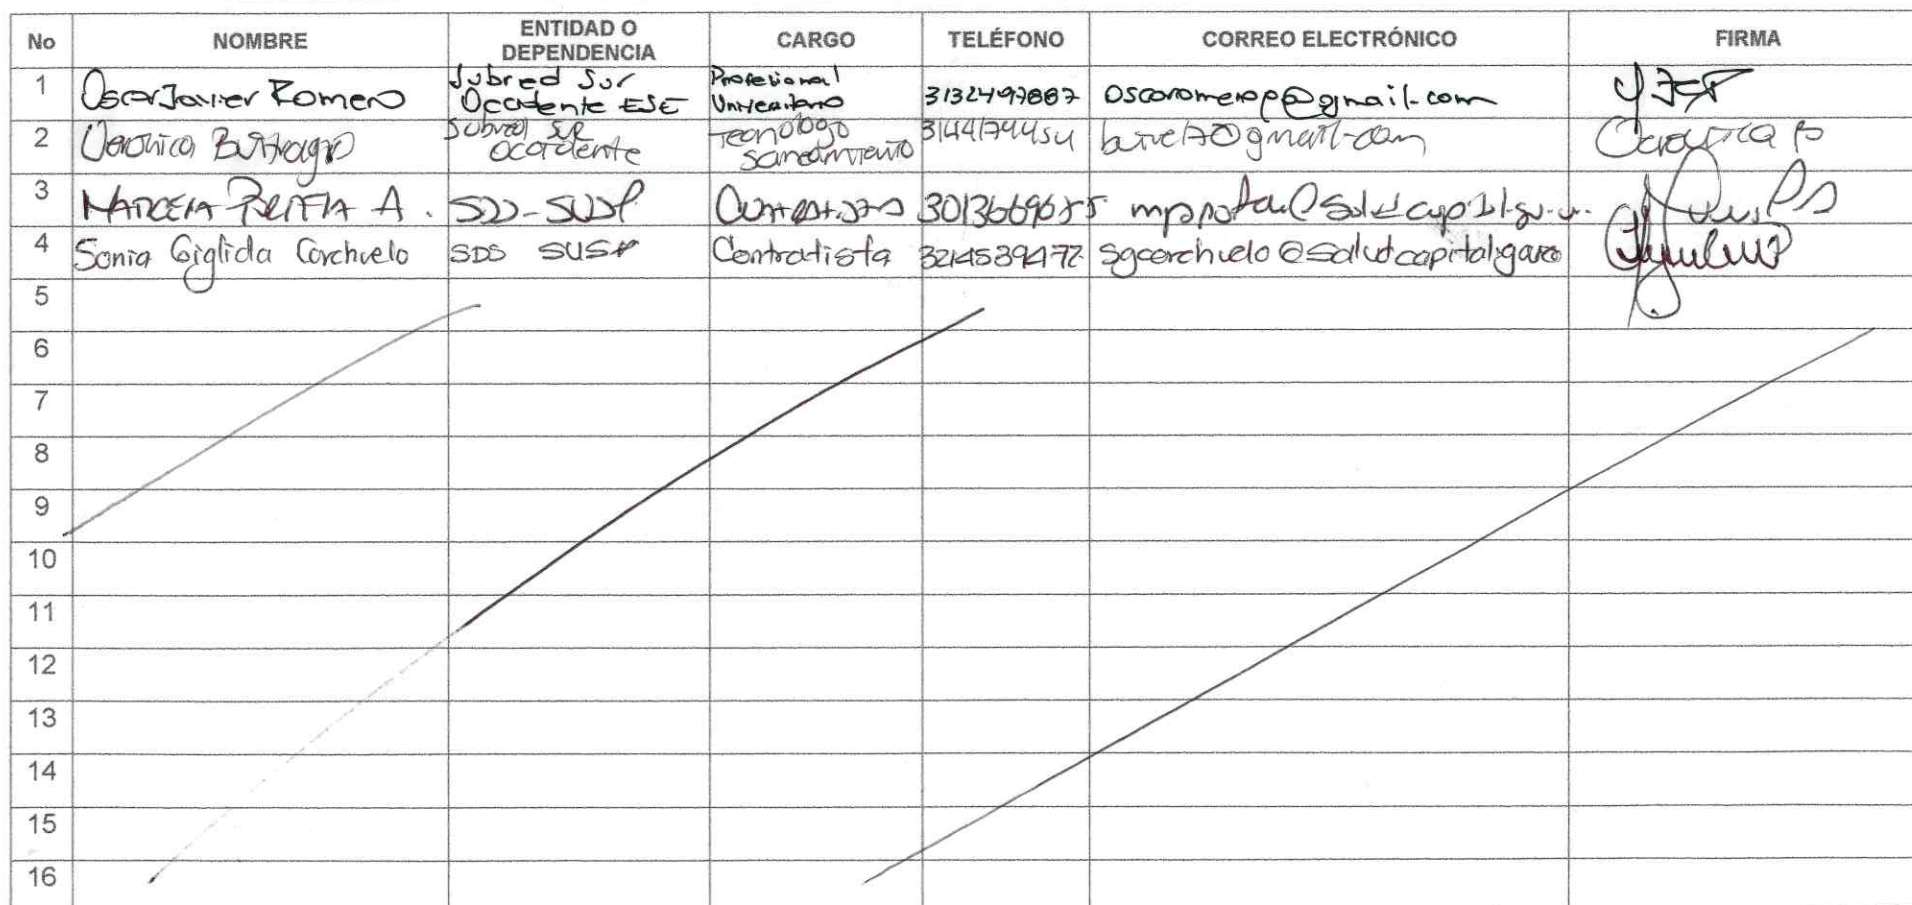 No NOMBRE ENTIDAD O DEPENDENCIA CARGO TELÉFONO CORREO ELECTRÓNICO FIRMA
1 Oscar Javier Romero Subred Sur Occidente ESE Profesional Universitario 3132497887 oscaromerop@gmail.com
2 Veronica Buitrago Subred Sur Occidente Tecnologo Saneamiento 3144179445 @gmail.com Veronica B
3 MARCELA A. SDS-SUSP Contratista 3013669655
4 Sonia Giglida Corchuelo SDS SUSP Contratista 3214539472 sgcorchuelo@saludcapital.gov.co
5
6
7
8
9
10
11
12
13
14
15
16